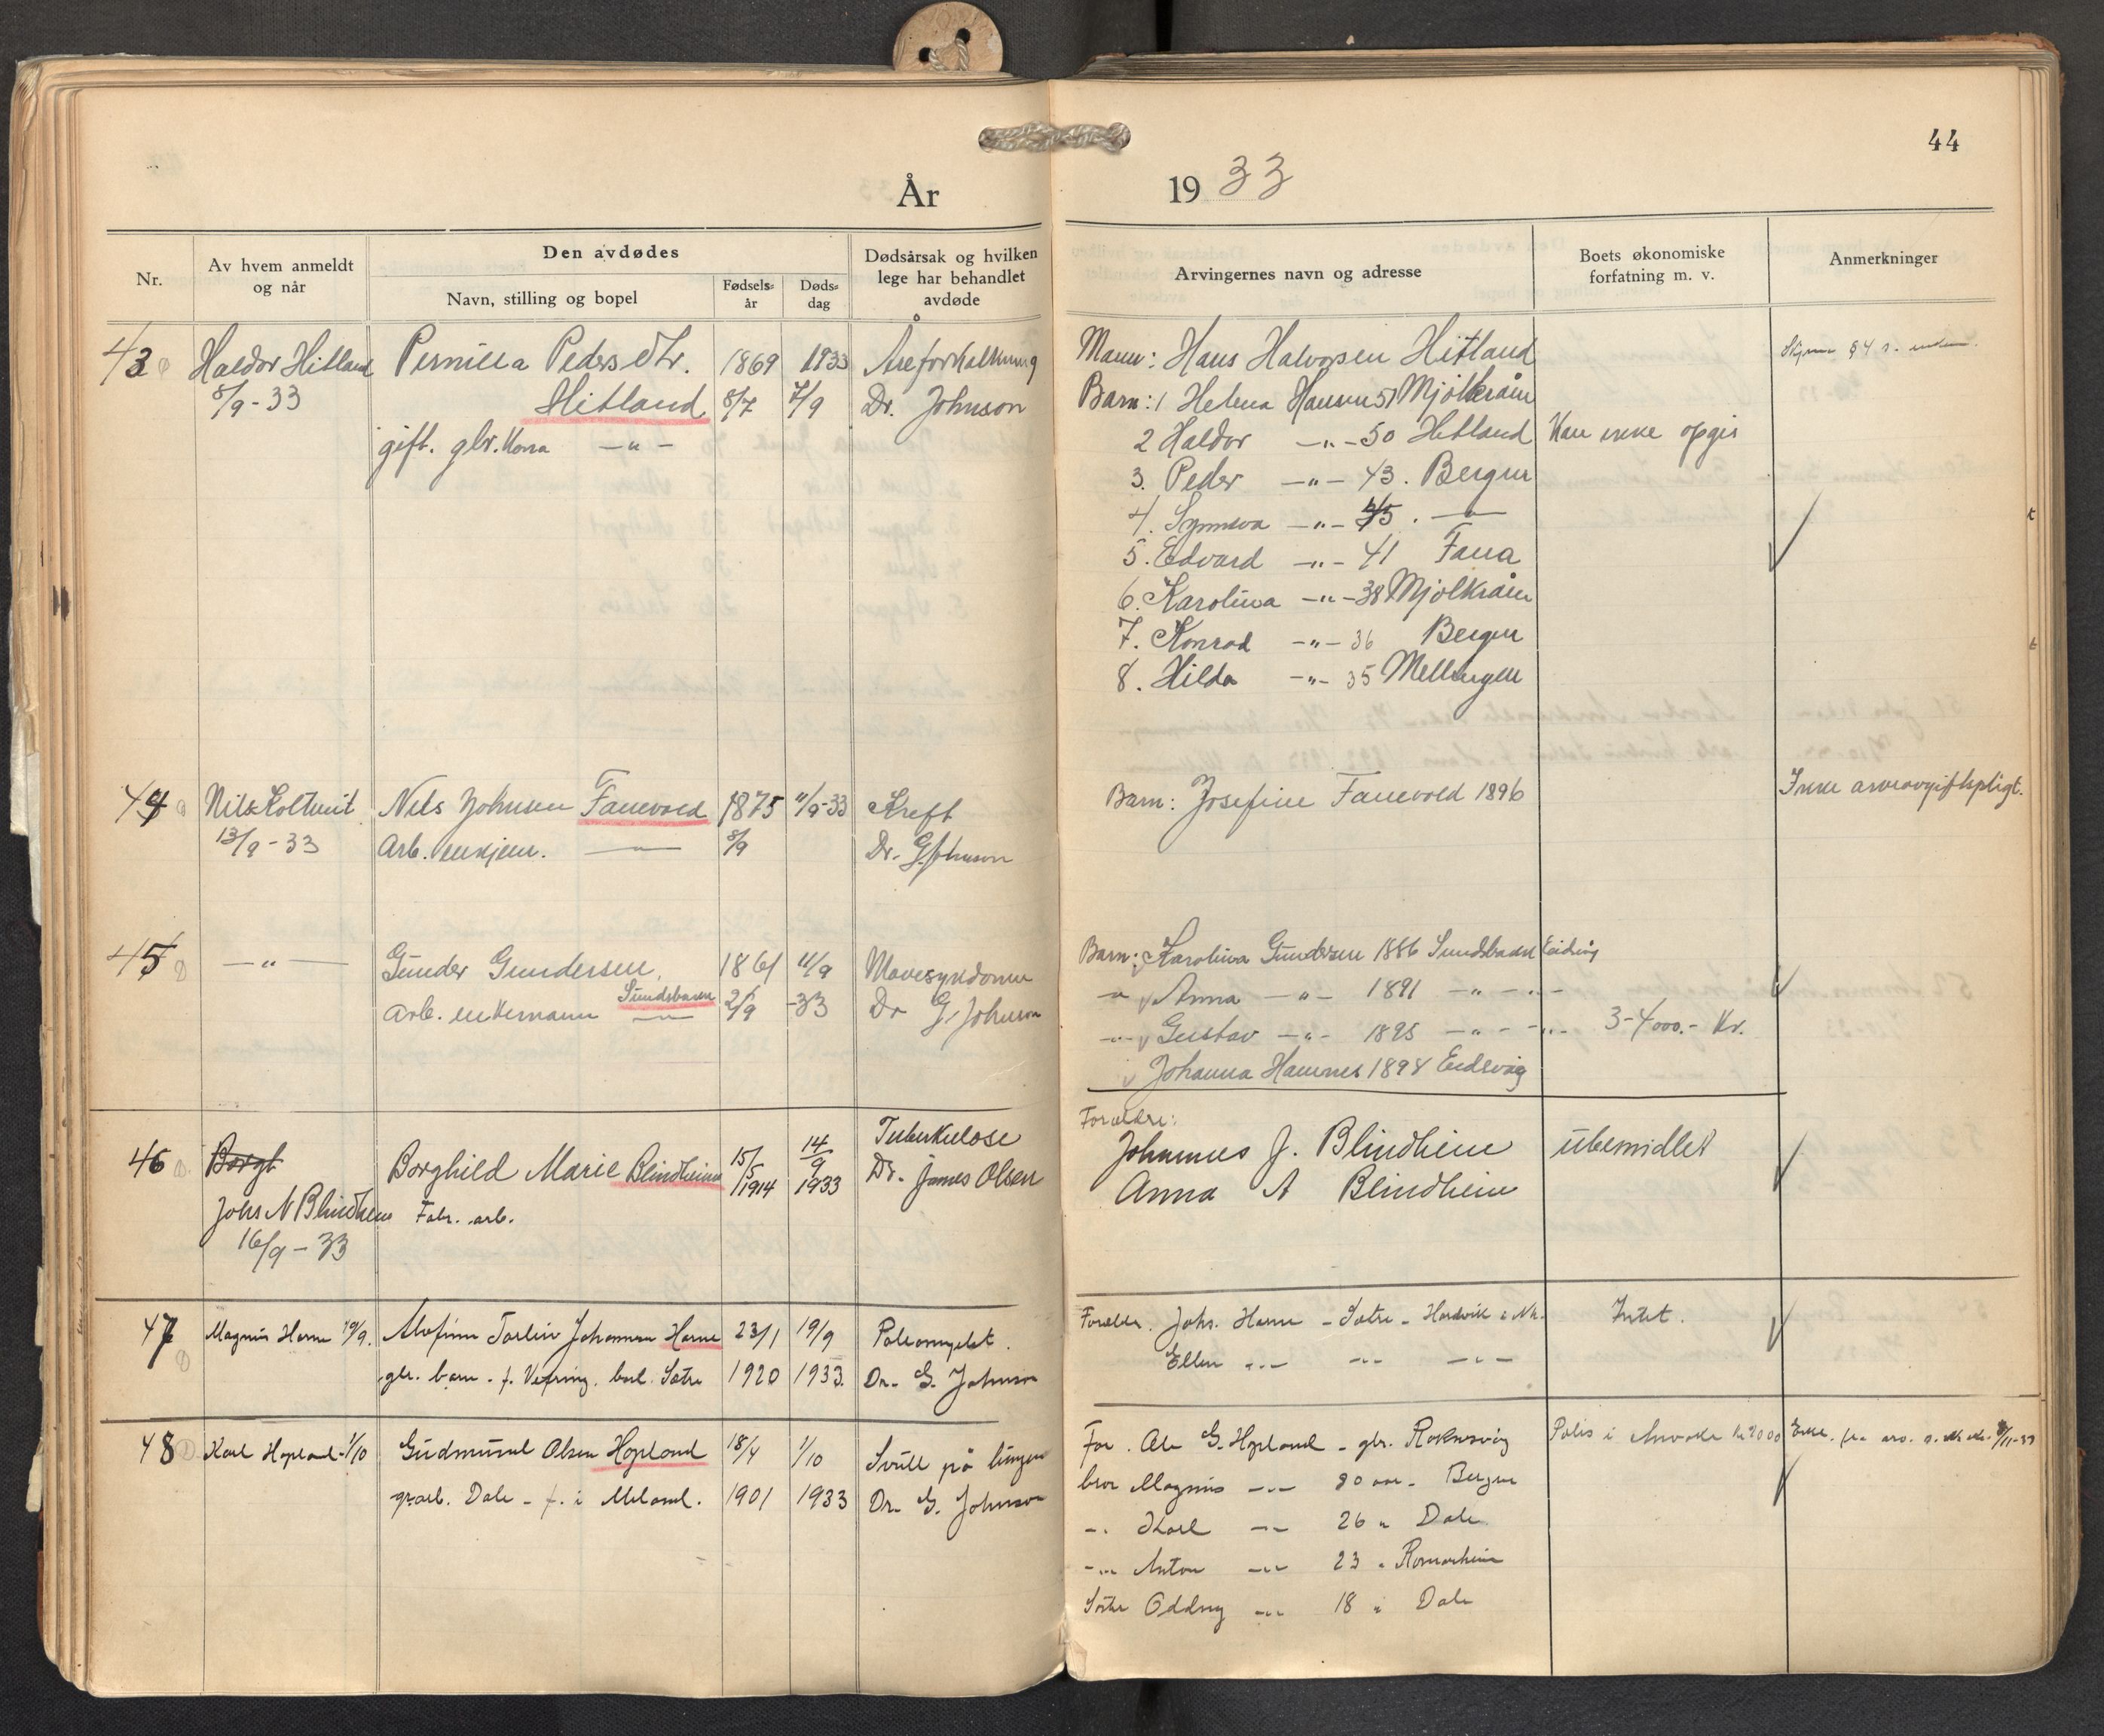 44
År 1933
Nr.
Av hvem anmeldt
og når
Den avdødes
Navn, stilling og bopel
Fødsels=
år
Døds=
dag
Dødsårsak og hvilken
lege har behandlet
avdøde
Arvingernes navn og adresse
Boets økonomiske
forfatning m. v.
Anmerkninger
43 Haldor Hitland Pernilla Pedersdtr. 1869 1933 Åreforkalkning
8/9-33 Hitland 8/7 7/9 Dr. Johnson
gift. gbr. Kona —"—
Mann: Hans Halvorsen Hitland
Barn: 1 Helena Hansen 51 Mjølkråen
2 Haldor —"— 50 Hitland Kan ikke opgis
3. Peder —"— 43. Bergen
4. Synnøva —"— 45. —"—
5. Edvard —"— 41 Fana
6. Karolina —"— 38 Mjølkråen
7. Konrad —"— 36 Bergen
8. Hilda —"— 35 Mellingen
44 Nils Toltveit Nils Johnsen Fanevold 1875 11/9-33 Kreft
13/9-33 Arb. enkjem. —"— 8/9 Dr. G. Johnson
Barn: Josefine Fanevold 1896 Ikke arveavgiftspligt.
45 —"— Gunder Gundersen, 1861 11/9 Mavesykdomm
Arb. enkemann Sundsbaen —"— 2/9 -33 Dr G. Johnson
Barn: Karolina Gundersen 1886 Sundsbaen Eidsvåg
—"— Anna —"— 1891 —"— —"—
—"— Gustav —"— 1895 —"— —"— 3-4000.- Kr.
Johanna Hamnes 1898 Eidsvåg
46 Borgh Borghild Marie Blindheim 15/5 1914 14/9 1933 Tuberkulose
Johs N Blindheim Fabr. arb. Dr. James Olsen
16/9-33
Forældre:
Johannes J. Blindheim ubemidlet
Anna A Blindheim
47 Magnus Horne 19/9. Torleiv Johannesen Horne 23/1 19/9 Poleomyelit.
gbr. barn. f. bosl. Sætre 1920 1933. Dr. G. Johnson
Foreldr. Johs. Horne - Sætre - Hordvik i Nh. Intet.
Ellen —"— —"— —"—
48 Karl Hopland 1/10 Gudmund Olsen Hopland 18/4 1/10 Svulst på lungen
grarb. Dale - f. i Meland. 1901 1933 Dr. G. Johnson
Far. Ole G. Hopland - gbr. Roknesvåg
bror Magnus —"— 30 aar - Bergen
—"— Karl —"— 26 " Dale
—"— Anton —"— 23 " Romarheim
Søster Oddny —"— 18 " Dale